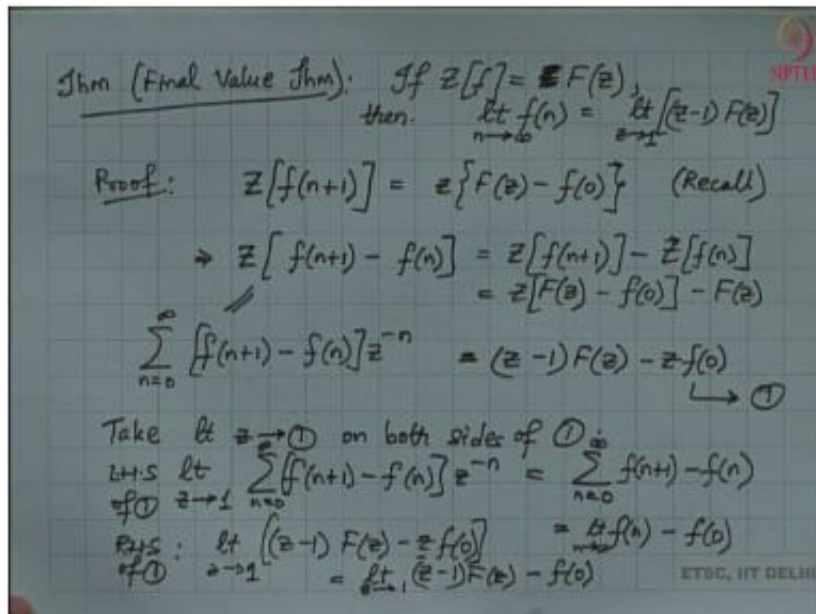 Thm (Final Value Thm): If Z[f] = F(z),
NPTEL
then. lt n→∞ f(n) = lt z→1 [(z-1) F(z)]
Proof: Z[f(n+1)] = z{F(z) - f(0)} (Recall)
⇒ Z[f(n+1) - f(n)] = Z[f(n+1)] - Z[f(n)]
= z[F(z) - f(0)] - F(z)
∑_{n=0}^{∞} [f(n+1) - f(n)] z^{-n} = (z-1)F(z) - z f(0)
→ ①
Take lt z→① on both sides of ① :
L.H.S of ① lt z→1 ∑_{n=0}^{∞} [f(n+1) - f(n)] z^{-n} = ∑_{n=0}^{∞} f(n+1) - f(n)
= lt n→∞ f(n) - f(0)
RHS of ① : lt z→1 [(z-1) F(z) - z f(0)]
= lt z→1 (z-1)F(z) - f(0)
ETSC, IIT DELHI